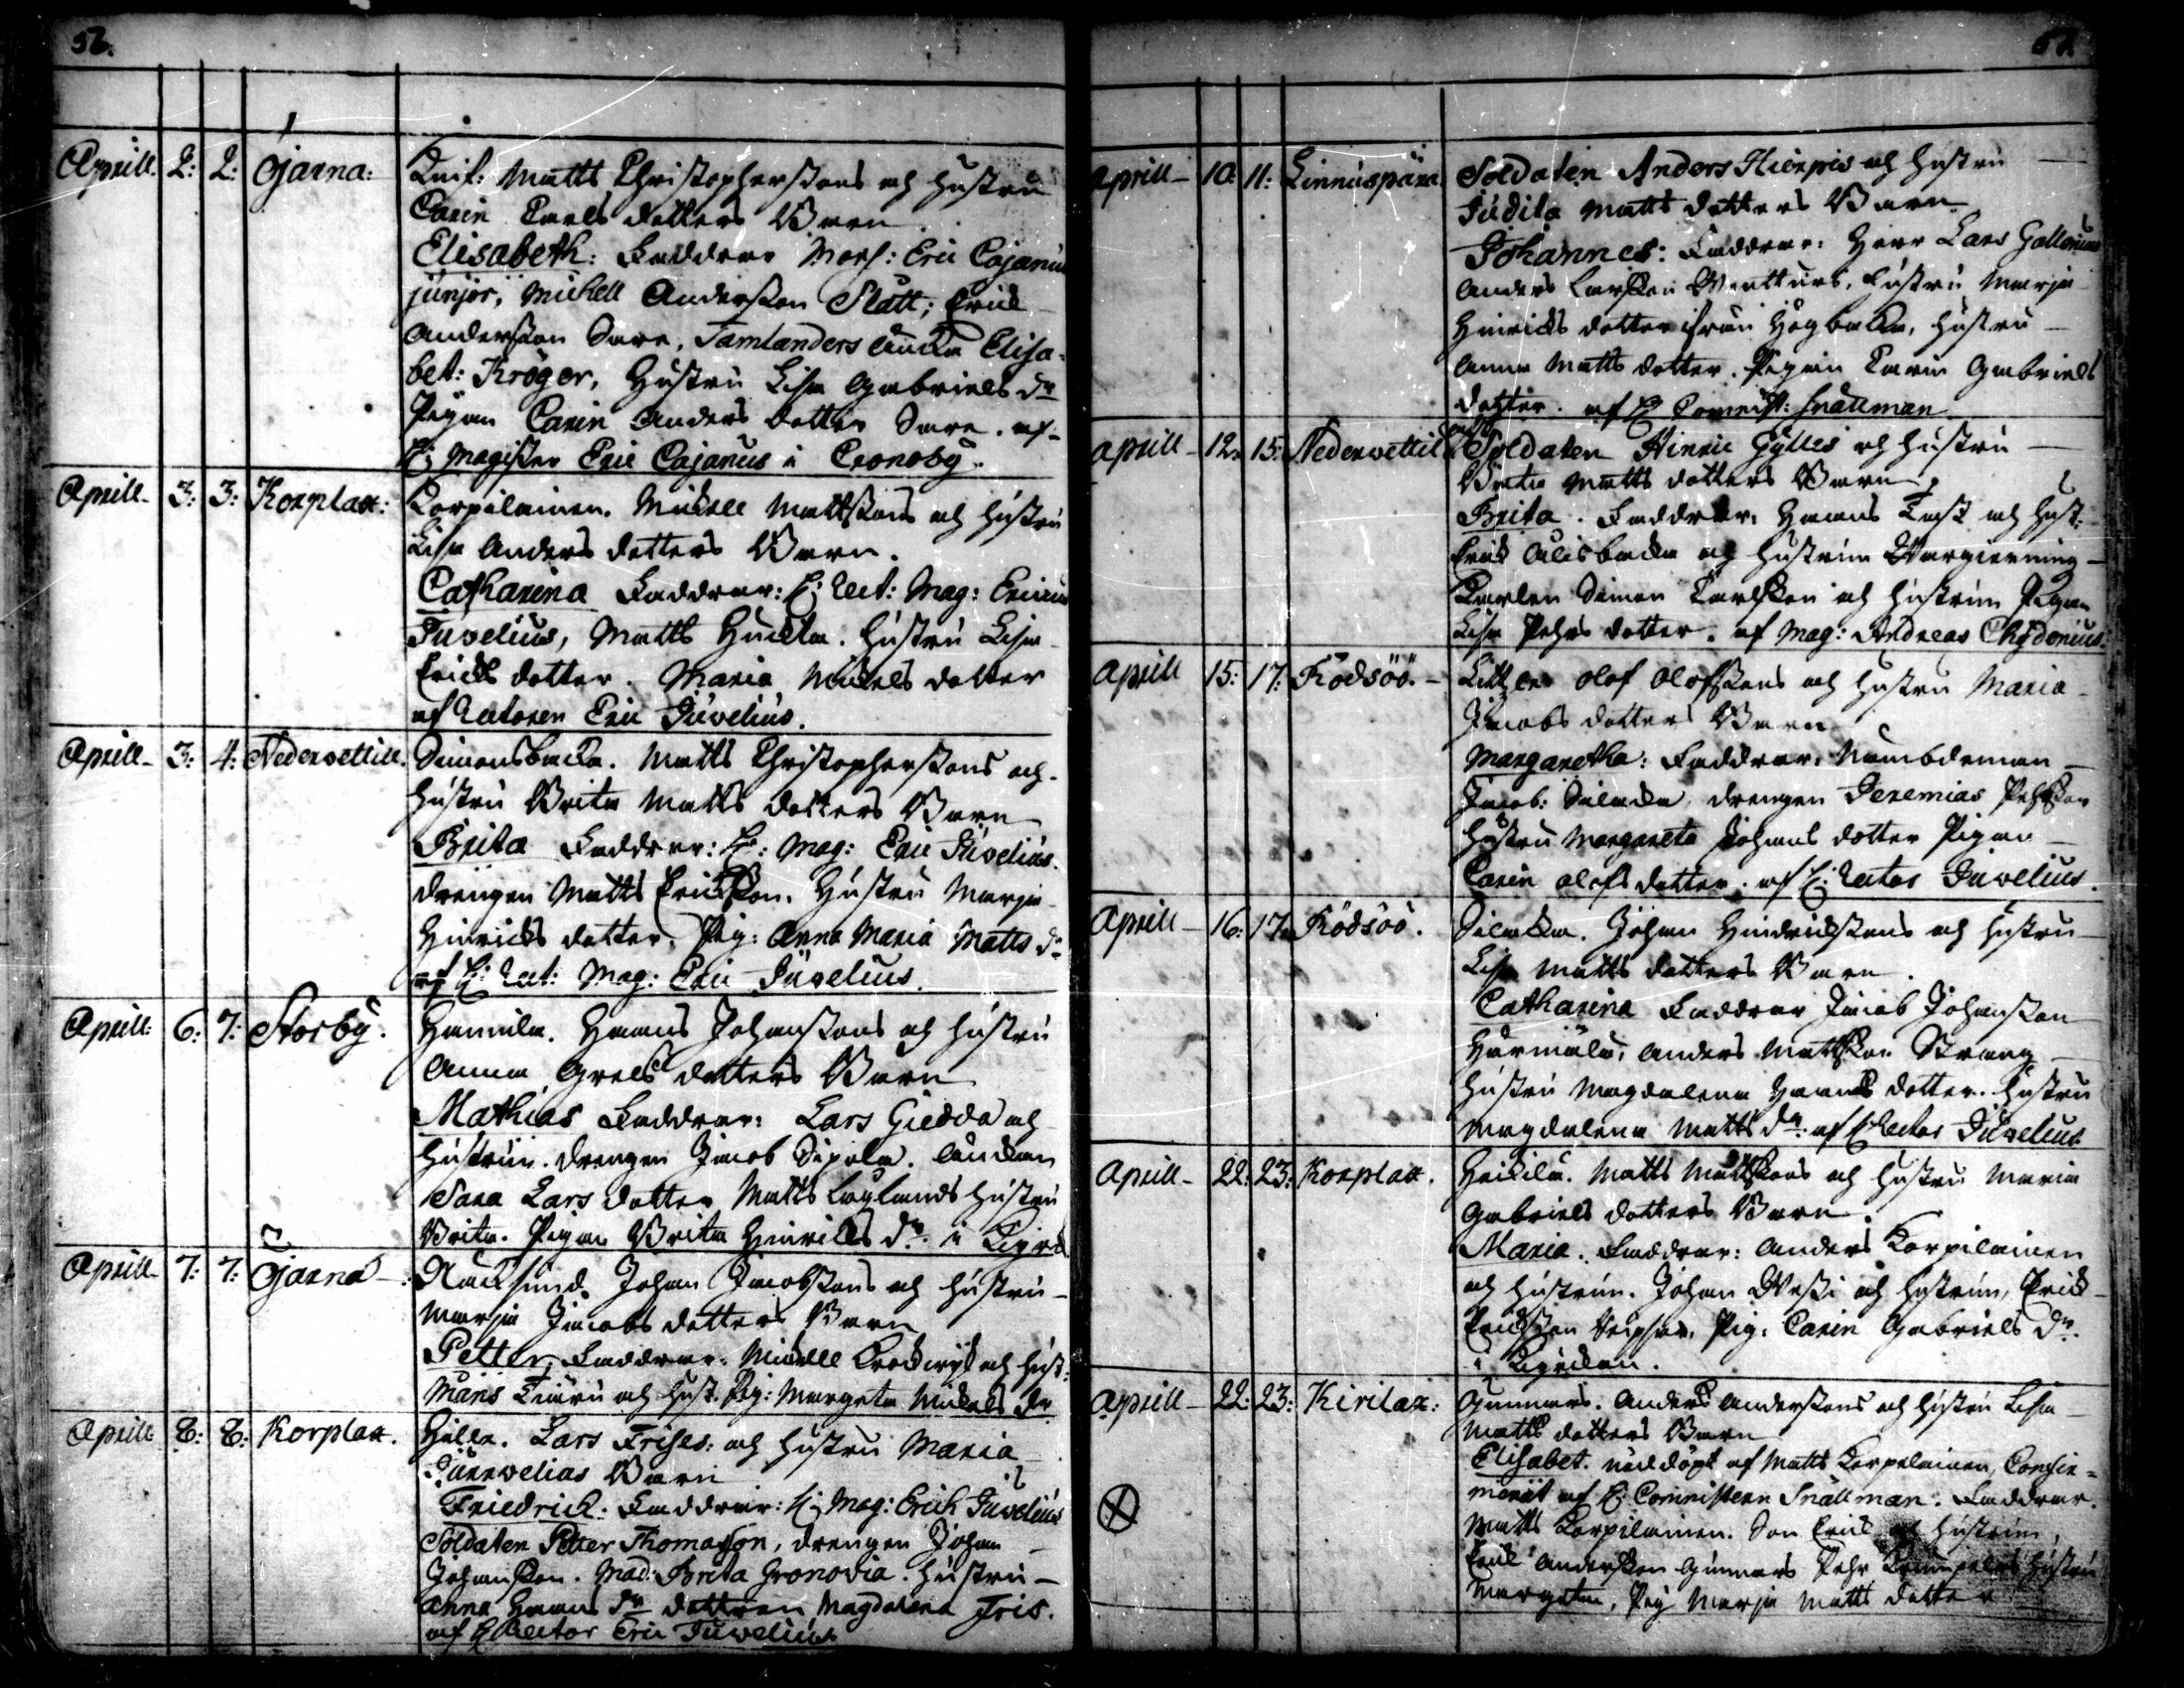 56.
Aprill. 2: 2: Gjarna: Knif: Matts Christopherssons och hustru
Carin Carls dotters Barn
Elisabeth: Faddrar Mons: Eric Cajanus
junjor, Mickell Andersson Slått; Erick
Andersson Sara, Tamlanders Enka Elisa-
bet: Kröger, Hustru Lisa Gabriels dr
Pigan Carin Anders dotter Sara. af
H: Magister Eric Cajanus i Cronoby.
Aprill 3: 3: Korplax: Korpilainen. Mickell Mattssons och hustru
Lisa Anders dotters Barn.
Catharina Faddrar: H: Rect: Mag: Ericus
Juvelius, Matts Huckla. Hustru Lisa
Ericks dotter. Maria Mickels dotter
af Rectoren Eric Juvelius.
Aprill 3: 4: Nedervettill. Simonsbacka. Matts Christopherssons och
hustru Brita Matts dotters Barn
Brita Faddrar: Hr: Mag: Eric Juvelius.
drengen Matts Ericksson. Hustru Marja
Hinricks dotter. Pig: Anna Maria Matts dr
af H: Rect: Mag: Eric Juvelius.
Aprill: 6: 7: Storby. Hamula. Hanns Johanssons och hustru
Anna Grels dotters Barn
Mathias Faddrar: Lars Giedda och
hustrun. drengen Jacob Sipola. Enckan
Sara Lars dotter Matts Laglands hustru
Brita. Pigan Brita Hinricks dr. i Kyrk
Aprill 7: 7: Gjarna Johan Jacobssons och hustru
Marja Jacobs dotters Barn
Petter. Faddrar. Mickell och hust:
Måns och hust. Pig: Margeta Mickels dr
Aprill 8: 8: Korplax. Hilla. Lars Frises: och hustru Maria
Juvelias Barn
Friedrich. Faddrar: H: Mag: Erich Juvelius
Soldaten Petter Thomasson, drengen Johan
Johansson. Mad: Brita Gronovia. Hustru
Anna Hans dr dottren Magdalena Fris.
af H Rector Eric Juvelius
57.
Aprill 10: 11: Linnuspära. Soldaten Anders Hierpes och hustru
Judita Matts dotters Barn
Johannes: Faddrar: Herr Lars Gallenius
Anders Larsson hustru Marja
Hinricks dotter ifrån Högbacka, hustru
Anna Matts dotter. Pigan Carin Gabriels
dotter. af H Comnist: Snällman
Aprill 12: 15: Nedervettil Soldaten Hinric Gylles och hustru
Brita Matts dotters Barn
Brita. Faddrar: Hanns Kask och hust:
Erick Alisbacka och hustrun
Karlen Simon Carlsson och hustrun Pigan
Lisa Pehrs dotter. af Mag: Andreas Chydenius.
Aprill 15: 17: Rödsöö. Olof Olofssons och hustru Maria
Jacobs dotters Barn
Margaretha: Faddrar: Nämbdeman
Jacob: Silacka, drengen Jeremias Pehrsson
hustru Margareta Johans dotter Pigan
Carin Olofs dotter. af H: Rector Juvelius.
Aprill 16: 17: Rödsöö. Silacka. Johan Hindrickssons och hustru
Lisa Matts dotters Barn.
Catharina Faddrar Jacob Johansson
Härmälä, Anders Mattsson Strang
hustru Magdalena Hanns dotter. hustru
Magdalena Matts dr. af H Rector Juvelius
Aprill 22: 23: Korplax. Heikilä. Matts Mattssons och hustru Maria
Gabriels dotters Barn.
Maria. Faddrar: Anders Korpilainen
och hustrun. Johan och hustrun, Erick
Ericksson Pig: Carin Gabriels dr.
i Kyrckan.
Aprill 22: 23: Kirilax: Gunnars. Anders Anderssons och hustru Lisa
Matts dotters Barn
Elisabet. nöddöpt af Matts Korpelainen, Confir-
merat af H: Comnistern Snällman. Faddrar.
Matts Korpilainen. Son Erick och hustrun,
Erick Andersson Gunnars Pehr hustru
Margeta, Pig Marja Matts dotter